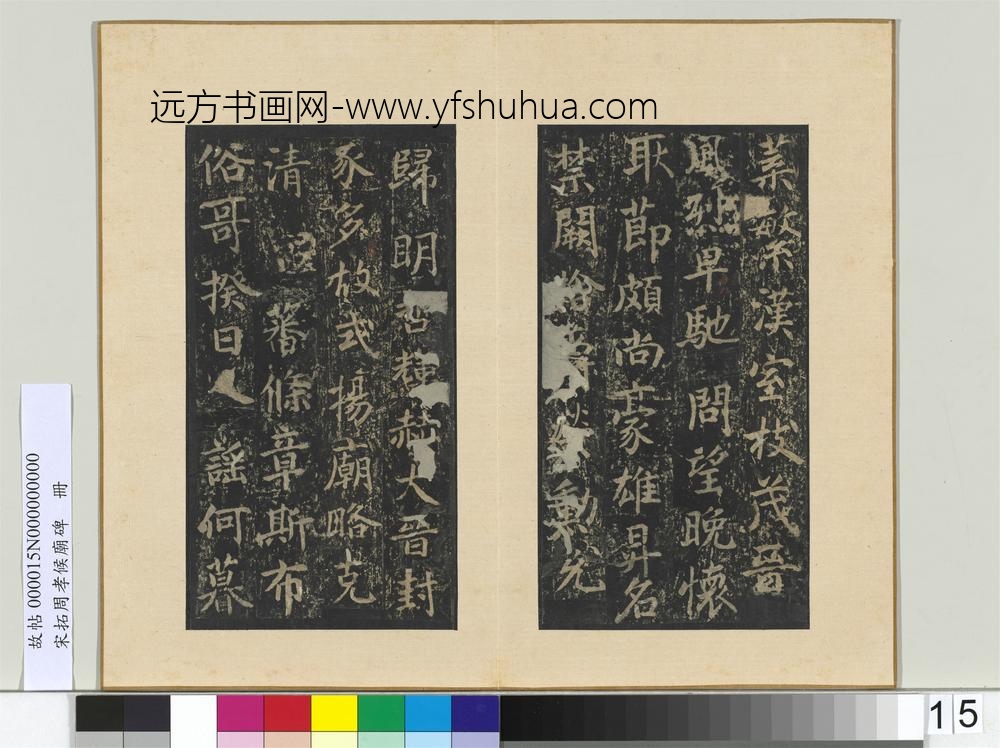 远方书画网-www.yfshuhua.com
葉繁漢室枝茂晉
風烈早馳問望晚懷
耿節頗尚豪雄昇名
禁闕
允
歸明
赫大晉封
豕多故式揚廟略克
清 蕃條章斯布
俗哥揆日人謡何暮
故帖 000015N000000000
宋拓周孝候廟碑 冊
15